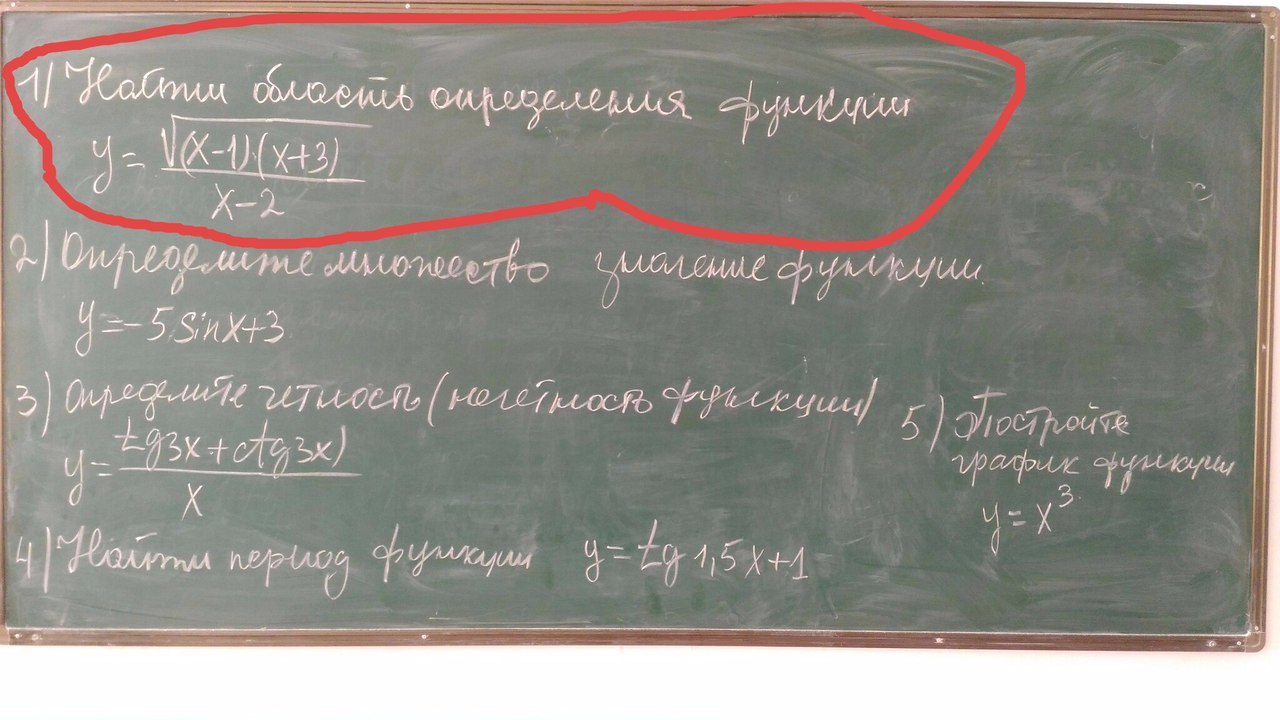 1) Найти область определения функции
y = √(x-1)(x+3) / x-2
2) Определите множество значение функции.
y = -5 sin x + 3
3) Определите четность (нечётность функции)
y = tg 3x + ctg 3x) / x
4) Найти период функции y = tg 1,5x + 1
5) Постройте
график функции
y = x³